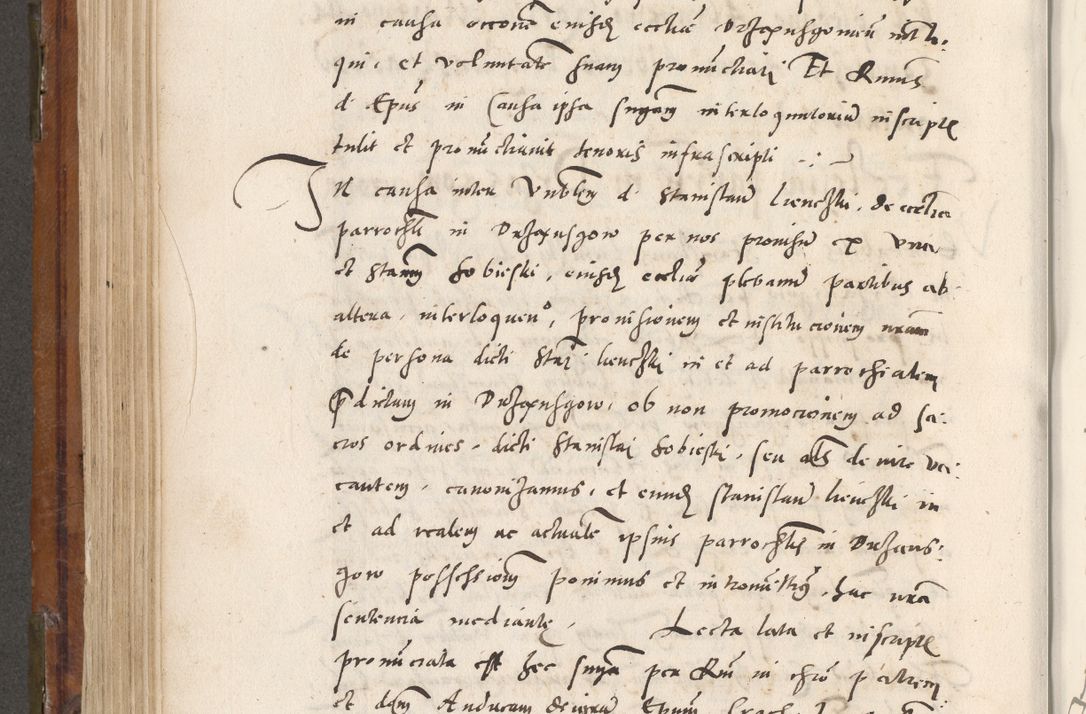 in causa occone eiusdē ecclie Drzexnsgoniem inlo:
qui: et voluntate suam pronūctiari Et Rmus
d Epus in Causa ipsa sniam interloquutoriā in scriptę
tulit et pronūctiavit tenoris infrascripti -:-
In causa inter Vnblem d Stanislaū lienczki. de ecclia
parrochli in Drzexnsgow per nos provisū ex vna
et Stanm Sobieski, eiusdē ecclie plebanū partibus ab
altera, interloquendo, provisionem et institucionem nram
de persona dicti Stani lienczki in et ad parrochialem
predictam in Drzexnsgow, ob non promocionem ad sa:
cros ordines, dicti Stanislai Sobieski, seu als de iure va:
cantem, canonizamus, et eundē Stanislaū lienczki in
et ad realem ac actualem ipsius parrochlis in Drzexns:
gow possessionem ponimus et intronittimus, hac nra
sentencia mediante. Lecta lata et in scriptę
pronūciata est hec snia per Rm in chro patrem
et dnm Andream Epum